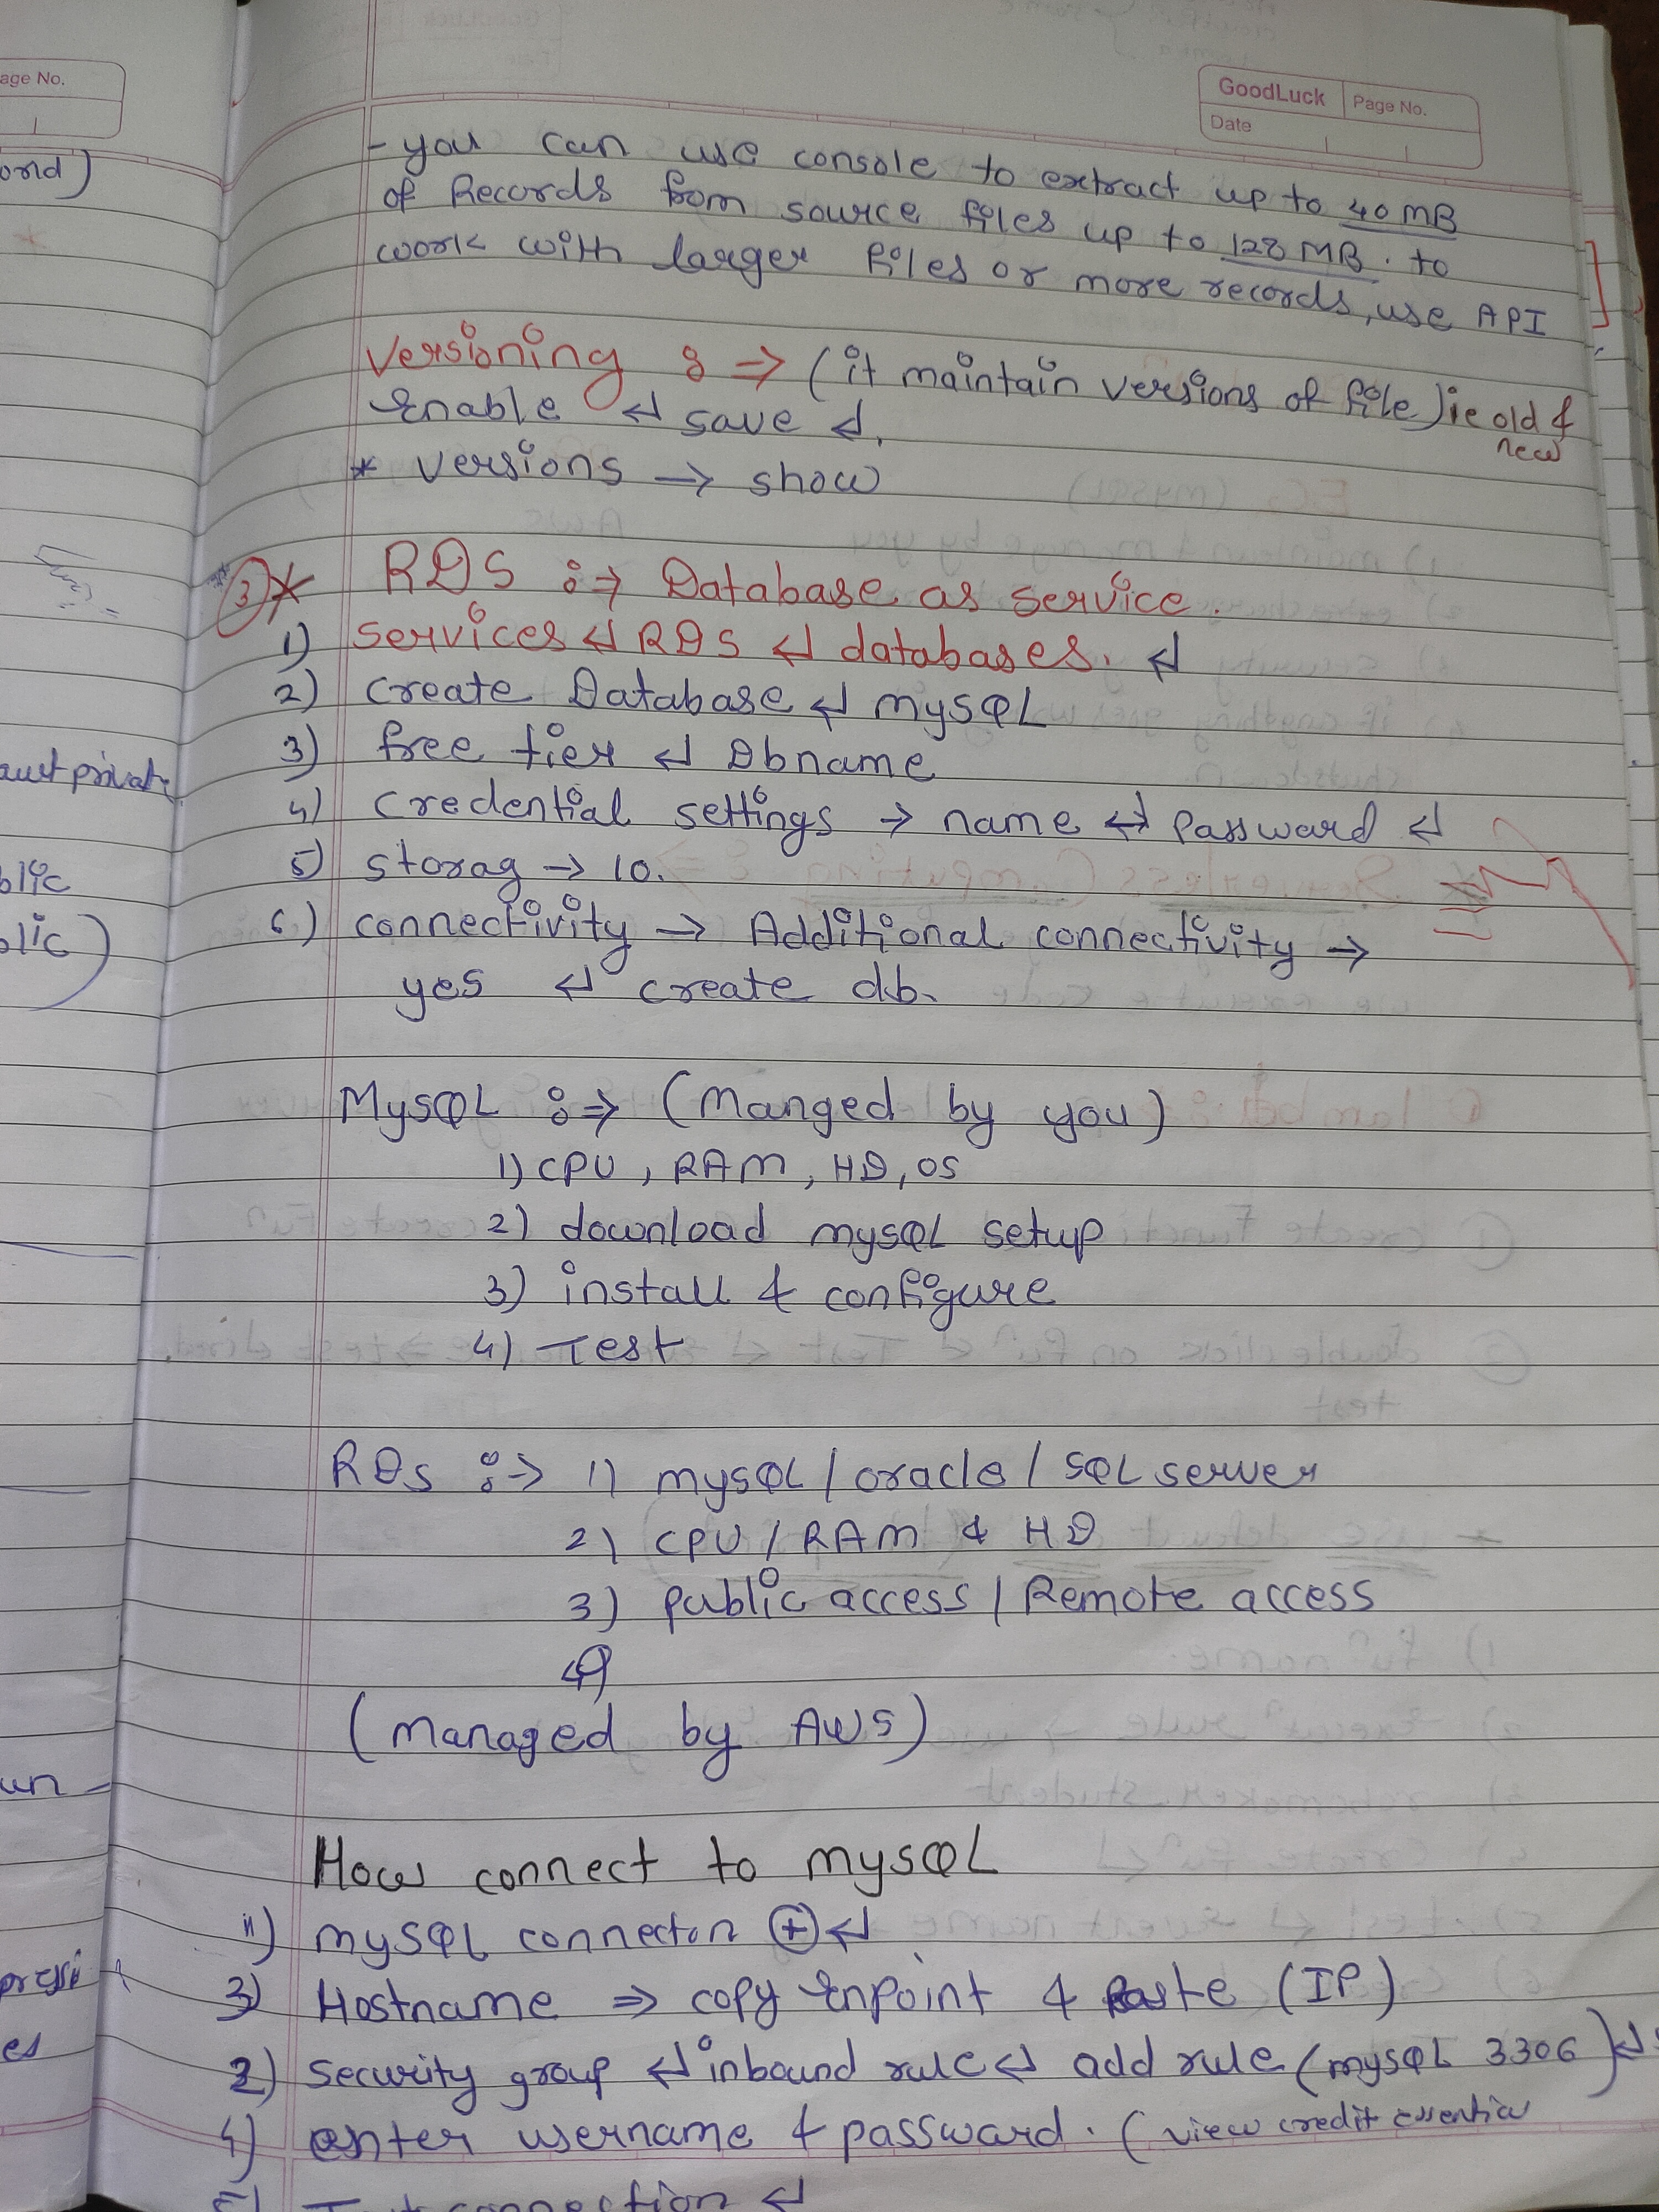 age No.
GoodLuck Page No.
Date
- you can use console to extract up to 40 MB
of Records from source files up to 128 MB. to
work with larger files or more records, use API
Versioning :⇒ (it maintain versions of file) ie old &
new
Enable ↵ save ↵.
* versions → show
3 * RDS :⇒ Database as service.
1) services ↵ RDS ↵ databases. ↵
2) create Database ↵ mysQL
3) free tier ↵ Dbname
4) credential settings → name ↵ password ↵
5) storag → 10.
6) connectivity → Additional connectivity →
yes ↵ create db.
MysQL :⇒ (Manged by you)
1) CPU, RAM, HD, OS
2) download mysQL setup
3) install & configure
4) Test
RDS :→ 1) mysQL / oracle / SQL server
2) CPU / RAM & HD
3) public access / Remote access
4)
(Managed by AWS)
How connect to mysQL
1) mySQL connecton ⊕ ↵
3) Hostname ⇒ copy Enpoint & paste (IP)
2) security group ↵ inbound rule ↵ add rule (mysQL 3306) ↵
4) enter username & password. (view credit essential
5) Test connection ↵